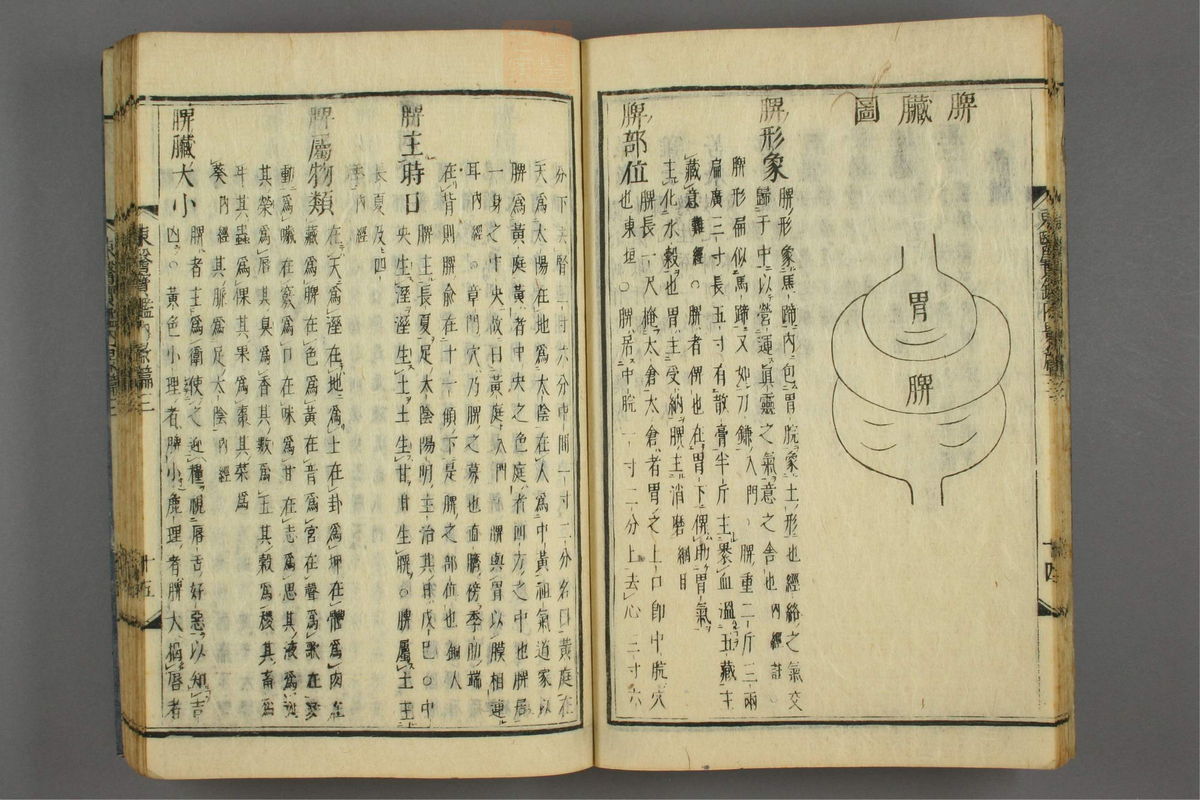 脾臟圖
胃
脾
脾形象
脾形象馬蹄內包胃脘象土形也經絡之氣交
歸于中以營運眞靈之氣意之舍也內經註○
脾形扁似馬蹄又如刀鎌入門○脾重二斤三兩
扁廣三寸長五寸有散膏半斤主裹血溫五藏主
藏意難經○脾者俾也在胃下俾助胃氣
主化水穀也胃主受納脾主消磨綱目
脾部位
脾長一尺掩太倉太倉者胃之上口卽中脘穴
也東垣○脾居中脘一寸二分上去心三寸六
東醫寶鑑內景篇三
十四
分下去腎三寸六分中間一寸二分名曰黃庭在
天爲太陽在地爲太陰在人爲中黃祖氣道家以
脾爲黃庭黃者中央之色庭者四方之中也脾居
一身之中央故曰黃庭入門○脾與胃以膜相連
耳內經○章門穴乃脾之募也直臍傍季肋端
在背則脾俞在十一傾下是脾之部位也銅人
脾主時日
脾主長夏足太陰陽明主治其日戊巳○中
央生溼溼生土土生甘甘生脾○脾屬土主
長夏及四
季內經
脾屬物類
在天爲溼在地爲土在卦爲坤在體爲肉在
藏爲脾在色爲黃在音爲宮在聲爲歌在變
動爲噦在竅爲口在味爲甘在志爲思其液爲涎
其榮爲唇其臭爲香其數爲五其穀爲稷其畜爲
牛其蟲爲倮其果爲棗其菜爲
葵內經○其脈足太陰內經
脾臟大小
脾者主爲衛使之迎糧視唇舌好惡以知吉
凶○黃色小理者脾小麄理者脾大揭唇者
東醫寶鑑內景篇三
十五